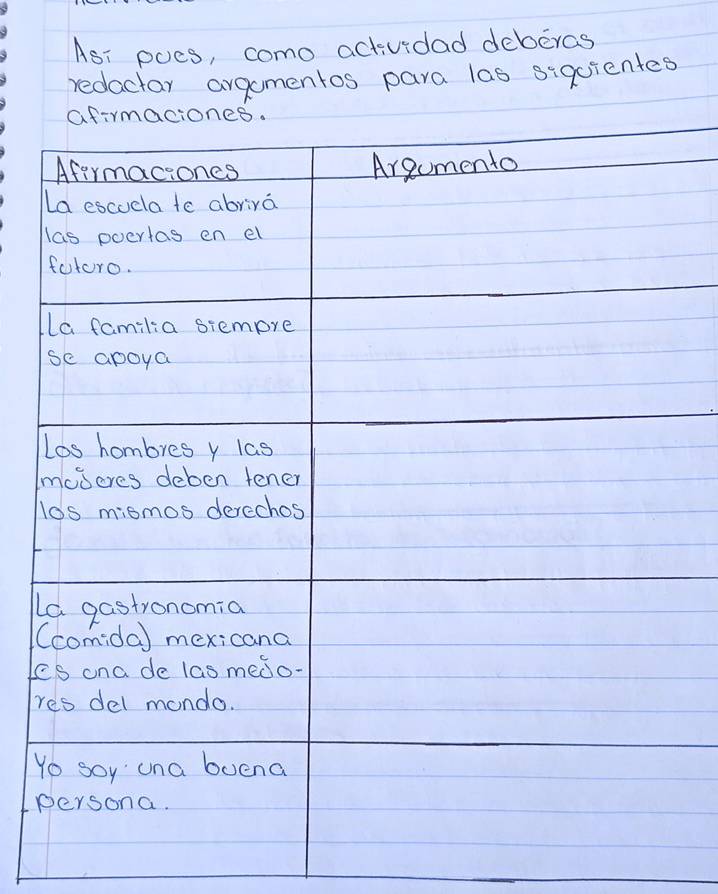 Así pues, como actividad deberás
redactar argumentos para las siguientes
afirmaciones.
Afirmaciones
Argumento
La escuela te abrirá
las puertas en el
futuro.
La familia siempre
se apoya
Los hombres y las
mujeres deben tener
los mismos derechos
La gastronomía
(comida) mexicana
es una de las mejo-
res del mundo.
Yo soy una buena
persona.